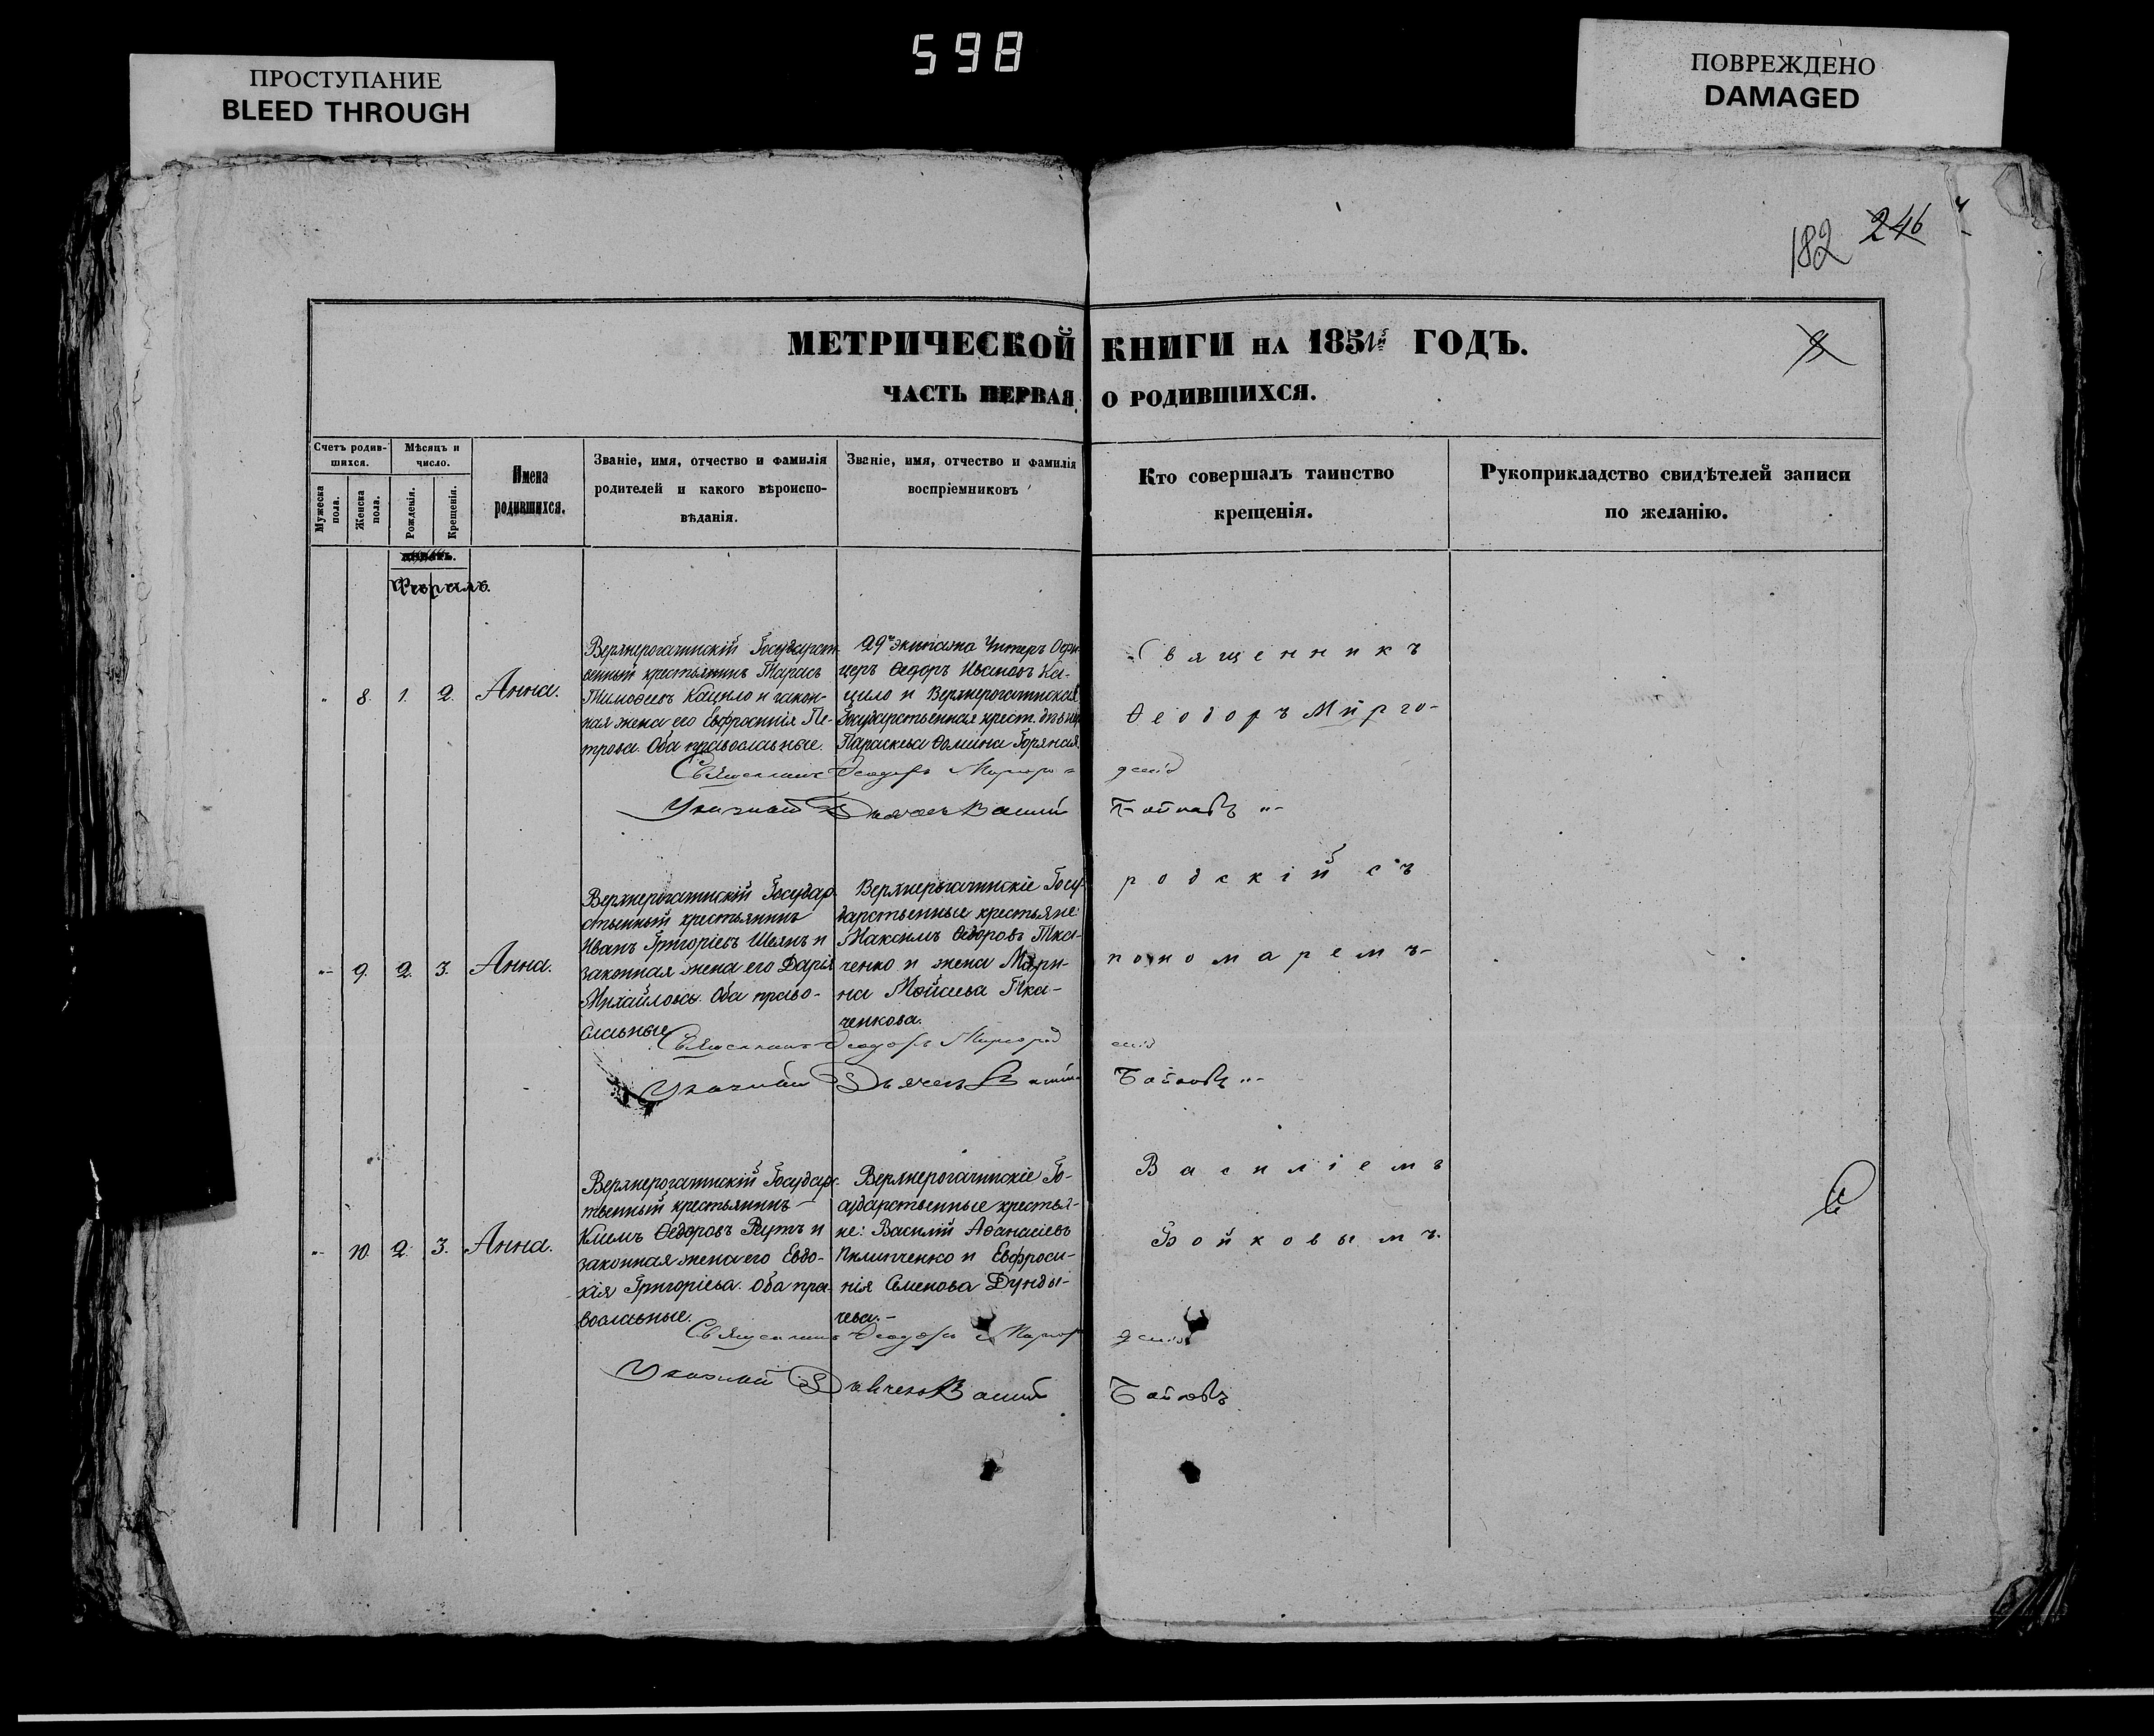 598
ПРОСТУПАНИЕ
BLEED THROUGH
ПОВРЕЖДЕНО
DAMAGED
182 246
МЕТРИЧЕСКОЙ КНИГИ НА 185 ГОДЪ.
ЧАСТЬ ПЕРВАЯ О РОДИВШИХСЯ.
Счетъ родив-
шихся.
Мужеска
пола.
Женска
пола.
Мѣсяцъ и
число.
Рожденія.
Крещенія.
Имена
родившихся.
Званіе, имя, отчество и фамилія
родителей и какого вѣроиспо-
вѣданія.
Званіе, имя, отчество и фамилія
воспріемниковъ
Кто совершалъ таинство
крещенія.
Рукоприкладство свидѣтелей записи
по желанію.
Февраль.
8. 1. 2. Анна.
Верхнерогачинскій Государст-
венный крестьянинъ Тарасъ
Тимофеевъ Кацило и закон-
ная жена его Евфросинія Пе-
трова. Оба православные.
29го экипажа Унтеръ Офи-
церъ Ѳедоръ Ивановъ Ка-
цило и Верхнерогачинская
Государственная крест.
Параскева Ѳомина Горяная.
Священникъ
Ѳеодоръ Мирго-
Священникъ Ѳеодоръ Миргородскій
Указный Дьячекъ Василій Бойковъ
9. 2. 3. Анна.
Верхнерогачинскій Государ-
ственный крестьянинъ
Иванъ Григоріевъ Шеянъ и
законная жена его Дарія
Михайлова. Оба право-
славные
Верхнерогачинскіе Госу-
дарственные крестьяне
Максимъ Ѳедоровъ Тка-
ченко и жена Мари-
на Мойсева Тка-
ченкова.
родскій съ
пономаремъ
Священникъ Ѳеодоръ Миргородскій
Указный Дьячекъ Василій Бойковъ
10. 2. 3. Анна.
Верхнерогачинскій Государс-
твенный крестьянинъ
Климъ Ѳедоровъ Реутъ и
законная жена его Евдо-
кія Григоріева. Оба пра-
вославные.
Верхнерогачинскіе Го-
сударственные крестья-
не: Василій Афанасіевъ
Пилипченко и Евфроси-
нія Семенова Дунды-
чева.
Василіемъ
Бойковымъ.
Священникъ Ѳеодоръ Миргородскій
Указный Дьячекъ Василій Бойковъ